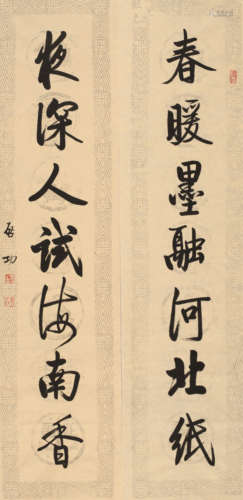 春暖墨融河北紙
夜深人試海南香
啓功